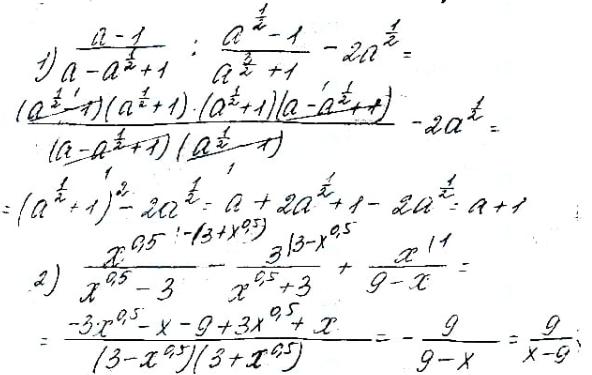 1) (a-1)/(a-a^(1/2)+1) : (a^(1/2)-1)/(a^(3/2)+1) - 2a^(1/2) =
((a^(1/2)-1)(a^(1/2)+1)·(a^(1/2)+1)(a-a^(1/2)+1))/((a-a^(1/2)+1)(a^(1/2)-1)) - 2a^(1/2) =
= (a^(1/2)+1)^2 - 2a^(1/2) = a + 2a^(1/2) + 1 - 2a^(1/2) = a + 1
2) x^(0,5) |-(3+x^(0,5))/(x^(0,5)-3) - 3 |3-x^(0,5)/(x^(0,5)+3) + x |1/(9-x) =
= (-3x^(0,5)-x-9+3x^(0,5)+x)/((3-x^(0,5))(3+x^(0,5))) = -9/(9-x) = 9/(x-9);